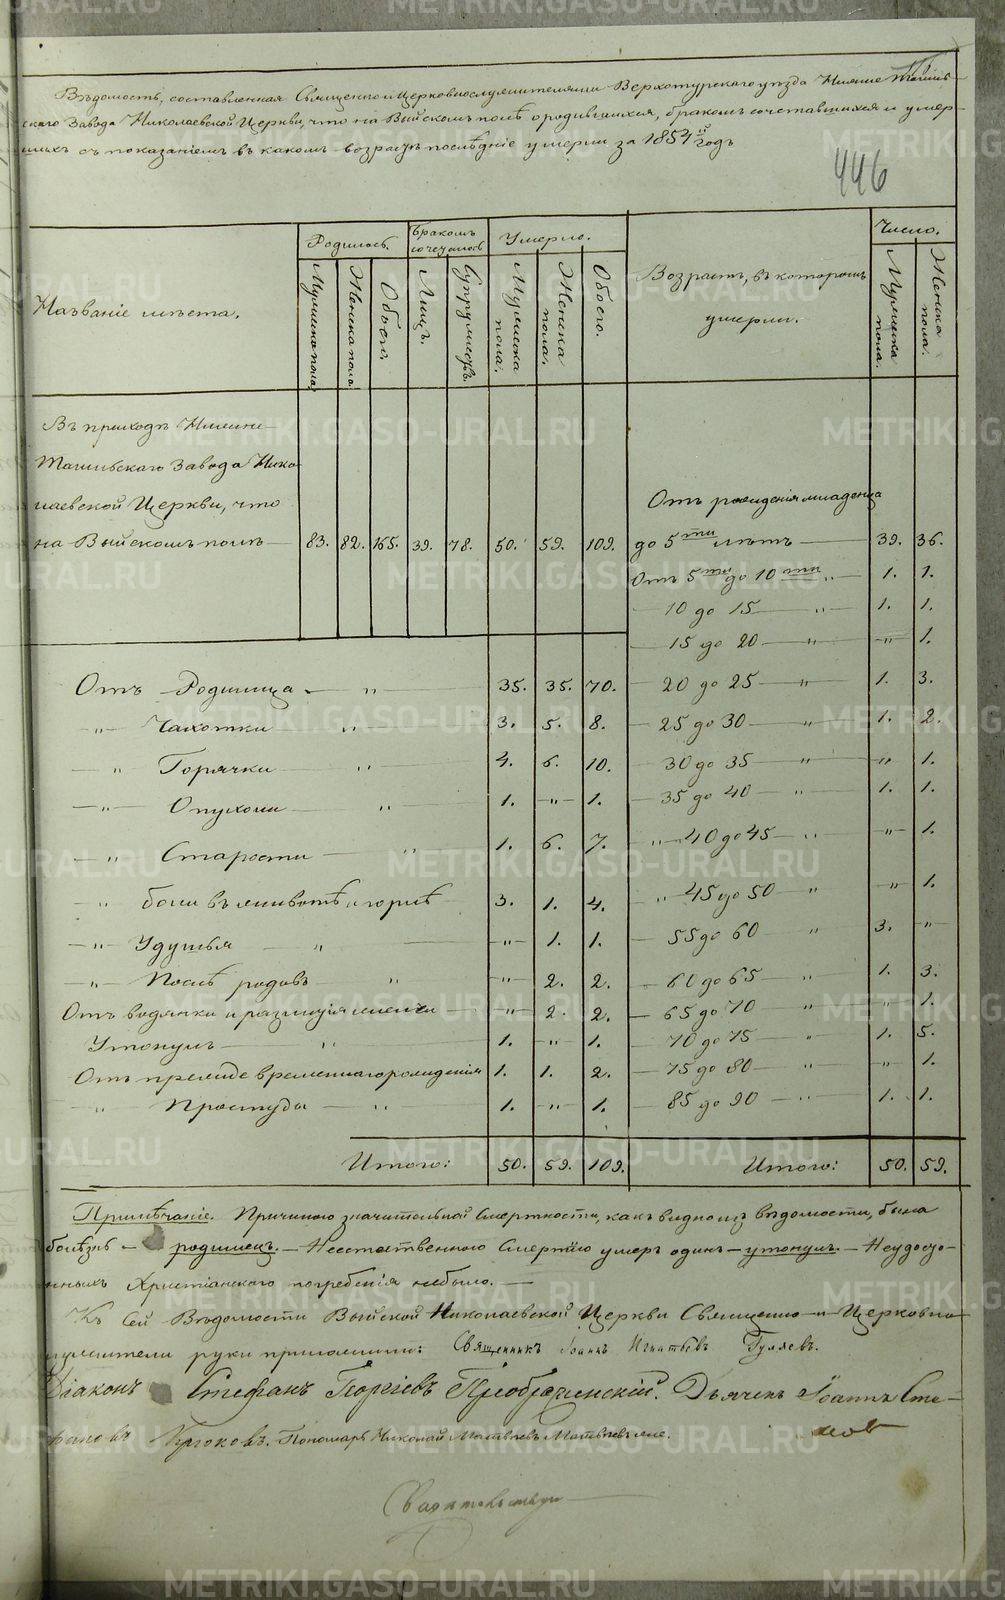 Вѣдомость, составленная Священно и Церковнослужителями Верхотурскаго уѣзда Нижне Тагиль-
скаго Завода Николаевской Церкви, что на Выйскомъ полѣ о родившихся, бракомъ сочетавшихся и умер-
шихъ съ показаніемъ въ какомъ возрастѣ послѣдніе умерли за 1854 й годъ
446
Названіе мѣста.
Родилось.
Мужеска пола.
Женска пола.
Обоего.
Бракомъ сочеталось
Лицъ.
Супружествъ.
Умерло.
Мужеска пола.
Женска пола.
Обоего.
Возрастъ, въ которомъ
умерли.
Число.
Мужеска пола.
Женска пола.
Въ приходѣ Нижне-
Тагильскаго Завода Нико-
лаевской Церкви, что
на Выйскомъ полѣ 83. 82. 165. 39. 78. 50. 59. 109.
Отъ рожденія младенца
до 5 ти лѣтъ 39. 36.
Отъ 5 ти до 10 ти " 1. 1.
10 до 15 " 1. 1.
15 до 20 " " 1.
20 до 25 " 1. 3.
25 до 30 " 1. 2.
30 до 35 " " 1.
35 до 40 " 1. 1.
" 40 до 45 " " 1.
" 45 до 50 " " 1.
55 до 60 " 3. "
60 до 65 " 1. 3.
65 до 70 " " 1.
70 до 75 " 1. 5.
75 до 80 " " 1.
85 до 90 " 1. 1.
Итого: 50. 59.
Отъ Родимца " 35. 35. 70.
" Чахотки " 3. 5. 8.
" Горячки " 4. 6. 10.
" Опухоли " 1. " 1.
" Старости " 1. 6. 7.
" боли въ животѣ и горлѣ 3. 1. 4.
" Удушья " " 1. 1.
" Послѣ родовъ " " 2. 2.
Отъ водянки и разлитія желчи " 2. 2.
Утонулъ " 1. " 1.
Отъ преждевременнаго рожденія 1. 1. 2.
" Простуды " 1. " 1.
Итого: 50. 59. 109.
Примѣчаніе. Причиною значительной смертности, какъ видно изъ вѣдомости, была
болѣзнь – родимецъ. – Неестественною Смертію умеръ одинъ – утонулъ. – Неудосто-
енныхъ Христіанскаго погребенія небыло. –
Къ Сей Вѣдомости Выйской Николаевской Церкви Священно и Церковно-
служители руки приложили: Священникъ Іоаннъ Игнатьевъ Гуляевъ.
Діаконъ Стефанъ Георгіевъ Преображенскій. Дьячекъ Іоаннъ Сте-
фановъ Пономарь Николай Матвѣевъ
METRIKI.GASO-URAL.RU